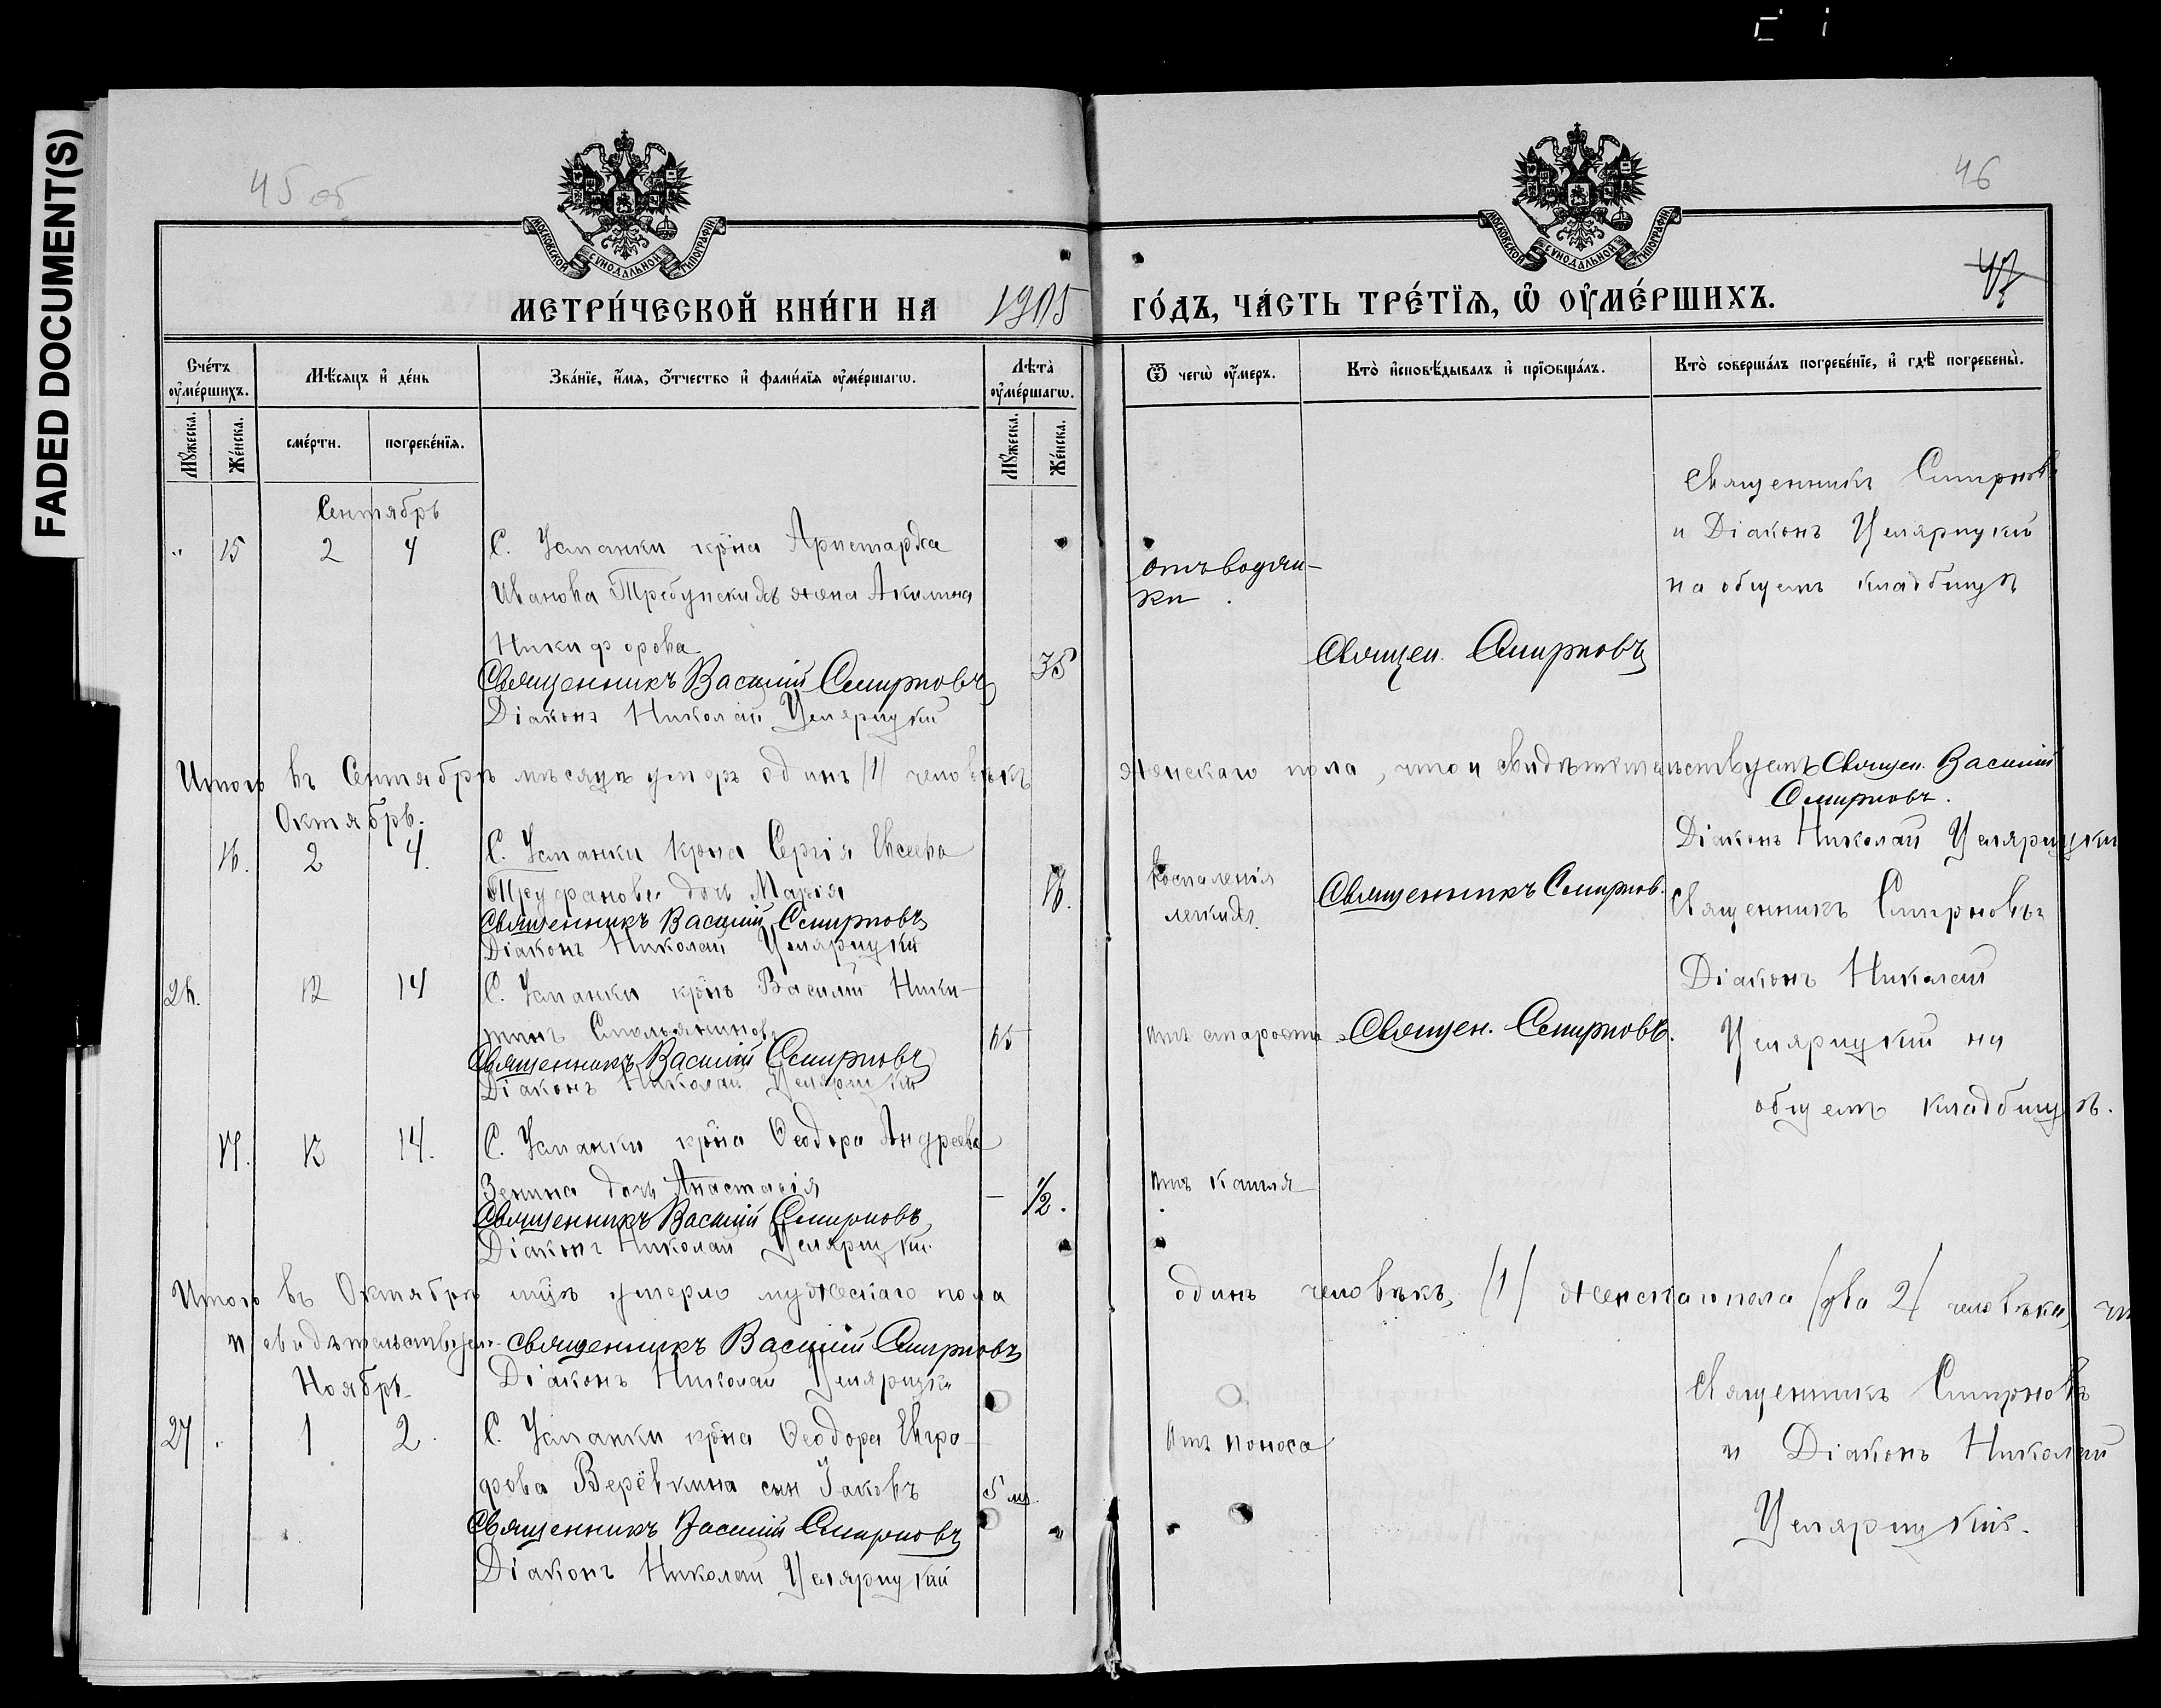 FADED DOCUMENT(S)
45 об
46
47
МОСКОВСКОЙ СѴНОДАЛЬНОЙ ТИПОГРАФІИ
МОСКОВСКОЙ СѴНОДАЛЬНОЙ ТИПОГРАФІИ
МЕТРИ́ЧЕСКОЙ КНИ́ГИ НА 1905 ГО́ДЪ, ЧА́СТЬ ТРЕ́ТЇѦ, Ѽ ОУ҆МЕ́РШИХЪ.
Сче́тъ оу҆ме́ршихъ.
Мꙋ́жеска.
Же́нска.
Мѣ́сяцъ и҆ де́нь
сме́рти.
погребе́нїѧ.
Зва́нїе, и҆́мѧ, ѻ҆́тчество и҆ фами́лїѧ оу҆ме́ршагѡ.
Лѣ́та оу҆ме́ршагѡ.
Мꙋ́жеска.
Же́нска.
Ѿ чегѡ̀ оу҆́меръ.
Кто̀ и҆сповѣ́дывалъ и҆ прїѡбща́лъ.
Кто̀ соверша́лъ погребе́нїе, и҆ гдѣ̀ погребены̀.
Сентябрь
" 15 2 4 С. Усманки кр̃на Аристарха
Иванова Требунскихъ жена Акилина
Никифорова 35
Священникъ Василій Смирновъ
Діаконъ Николай Целярицкій
отъ водян-
ки.
Священ. Смирновъ
Священникъ Смирновъ
и Діаконъ Целярицкій
на общемъ кладбищѣ
Итого въ Сентябрѣ мѣсяцѣ умеръ одинъ /1/ человѣкъ женскаго пола, что и свидѣтельствуемъ Священ. Василій
Смирновъ.
Діаконъ Николай Целярицкій
Октябрь.
16. 2 4. С. Усманки кр̃на Сергія Евсеева
Труфанова дочь Марія 16.
Священникъ Василій Смирновъ
Діаконъ Николай Целярицкій
воспаленія
легкихъ.
Священникъ Смирнов.
Священникъ Смирновъ
Діаконъ Николай
Целярицкій на
общемъ кладбищѣ.
26. 12 14 С. Усманки кр̃нъ Василій Ники-
тинъ Смольяниновъ 65
Священникъ Василій Смирновъ
Діаконъ Николай Целярицкій
отъ старости
Священ. Смирновъ.
17. 13 14. С. Усманки кр̃на Ѳеодора Андреева
Зенина дочь Анастасія – 1/2.
Священникъ Василій Смирновъ
Діаконъ Николай Целярицкій.
отъ кашля
Итого въ Октябрѣ мцѣ умерло мужескаго пола одинъ человѣкъ /1/ женскаго пола /два 2/ человѣка, чт
и свидѣтельствуемъ священникъ Василій Смирновъ
Діаконъ Николай Целярицк
Ноябрь
27. 1 2. С. Усманки кр̃на Ѳеодора Евгра-
фова Верёвкина сын Іаковъ 5 м.
Священникъ Василій Смирновъ
Діаконъ Николай Целярицкій
отъ поноса
Священникъ Смирновъ
и Діаконъ Николай
Целярицкій.